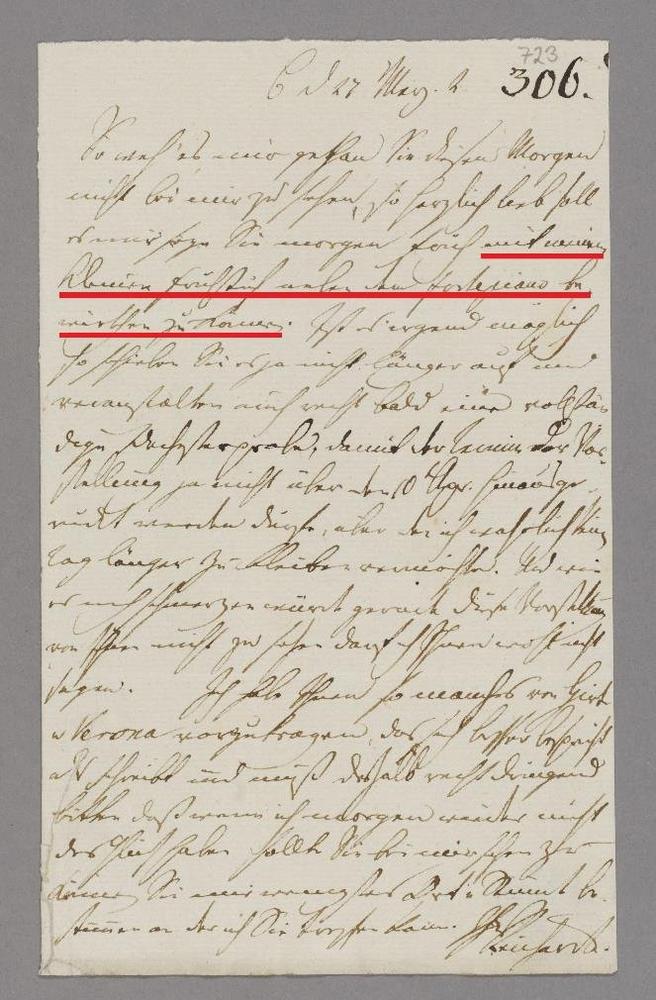 723
B d 27 März. 2 306.
So weh es mir gethan Sie diesen Morgen
nicht bei mir zu sehen, so herzlich lieb soll
es mir seyn Sie morgen früh mit einem
kleinen Frühstück neben dem Fortepiano be
wirthen zu können. Ist es irgend möglich
so schieben Sie es ja nicht länger auf und
veranstalten auch recht bald eine vollstän
dige Orchesterprobe, damit der Termin der Vor
stellung ja nicht über den 10 Apr. hinausge
rückt werden dürfte, über den ich wahrlich keinen
Tag länger zu bleiben vermöchte. Und wie
es mich schmerzen würde gerade diese Vorstellung
von Ihnen nicht zu sehen darf ich Ihnen wohl nicht
sagen. Ich habe Ihnen so manches von
Verona vorzutragen, das sich besser bespricht
als schreibt und muß deshalb recht dringend
bitten daß wenn ich morgen wieder nicht
das Glück haben sollte Sie bei mir sehen zu
können Sie mir wenigstens Ort u Stunde be
stimmen an der ich Sie treffen kann. Ihr
Reichardt.